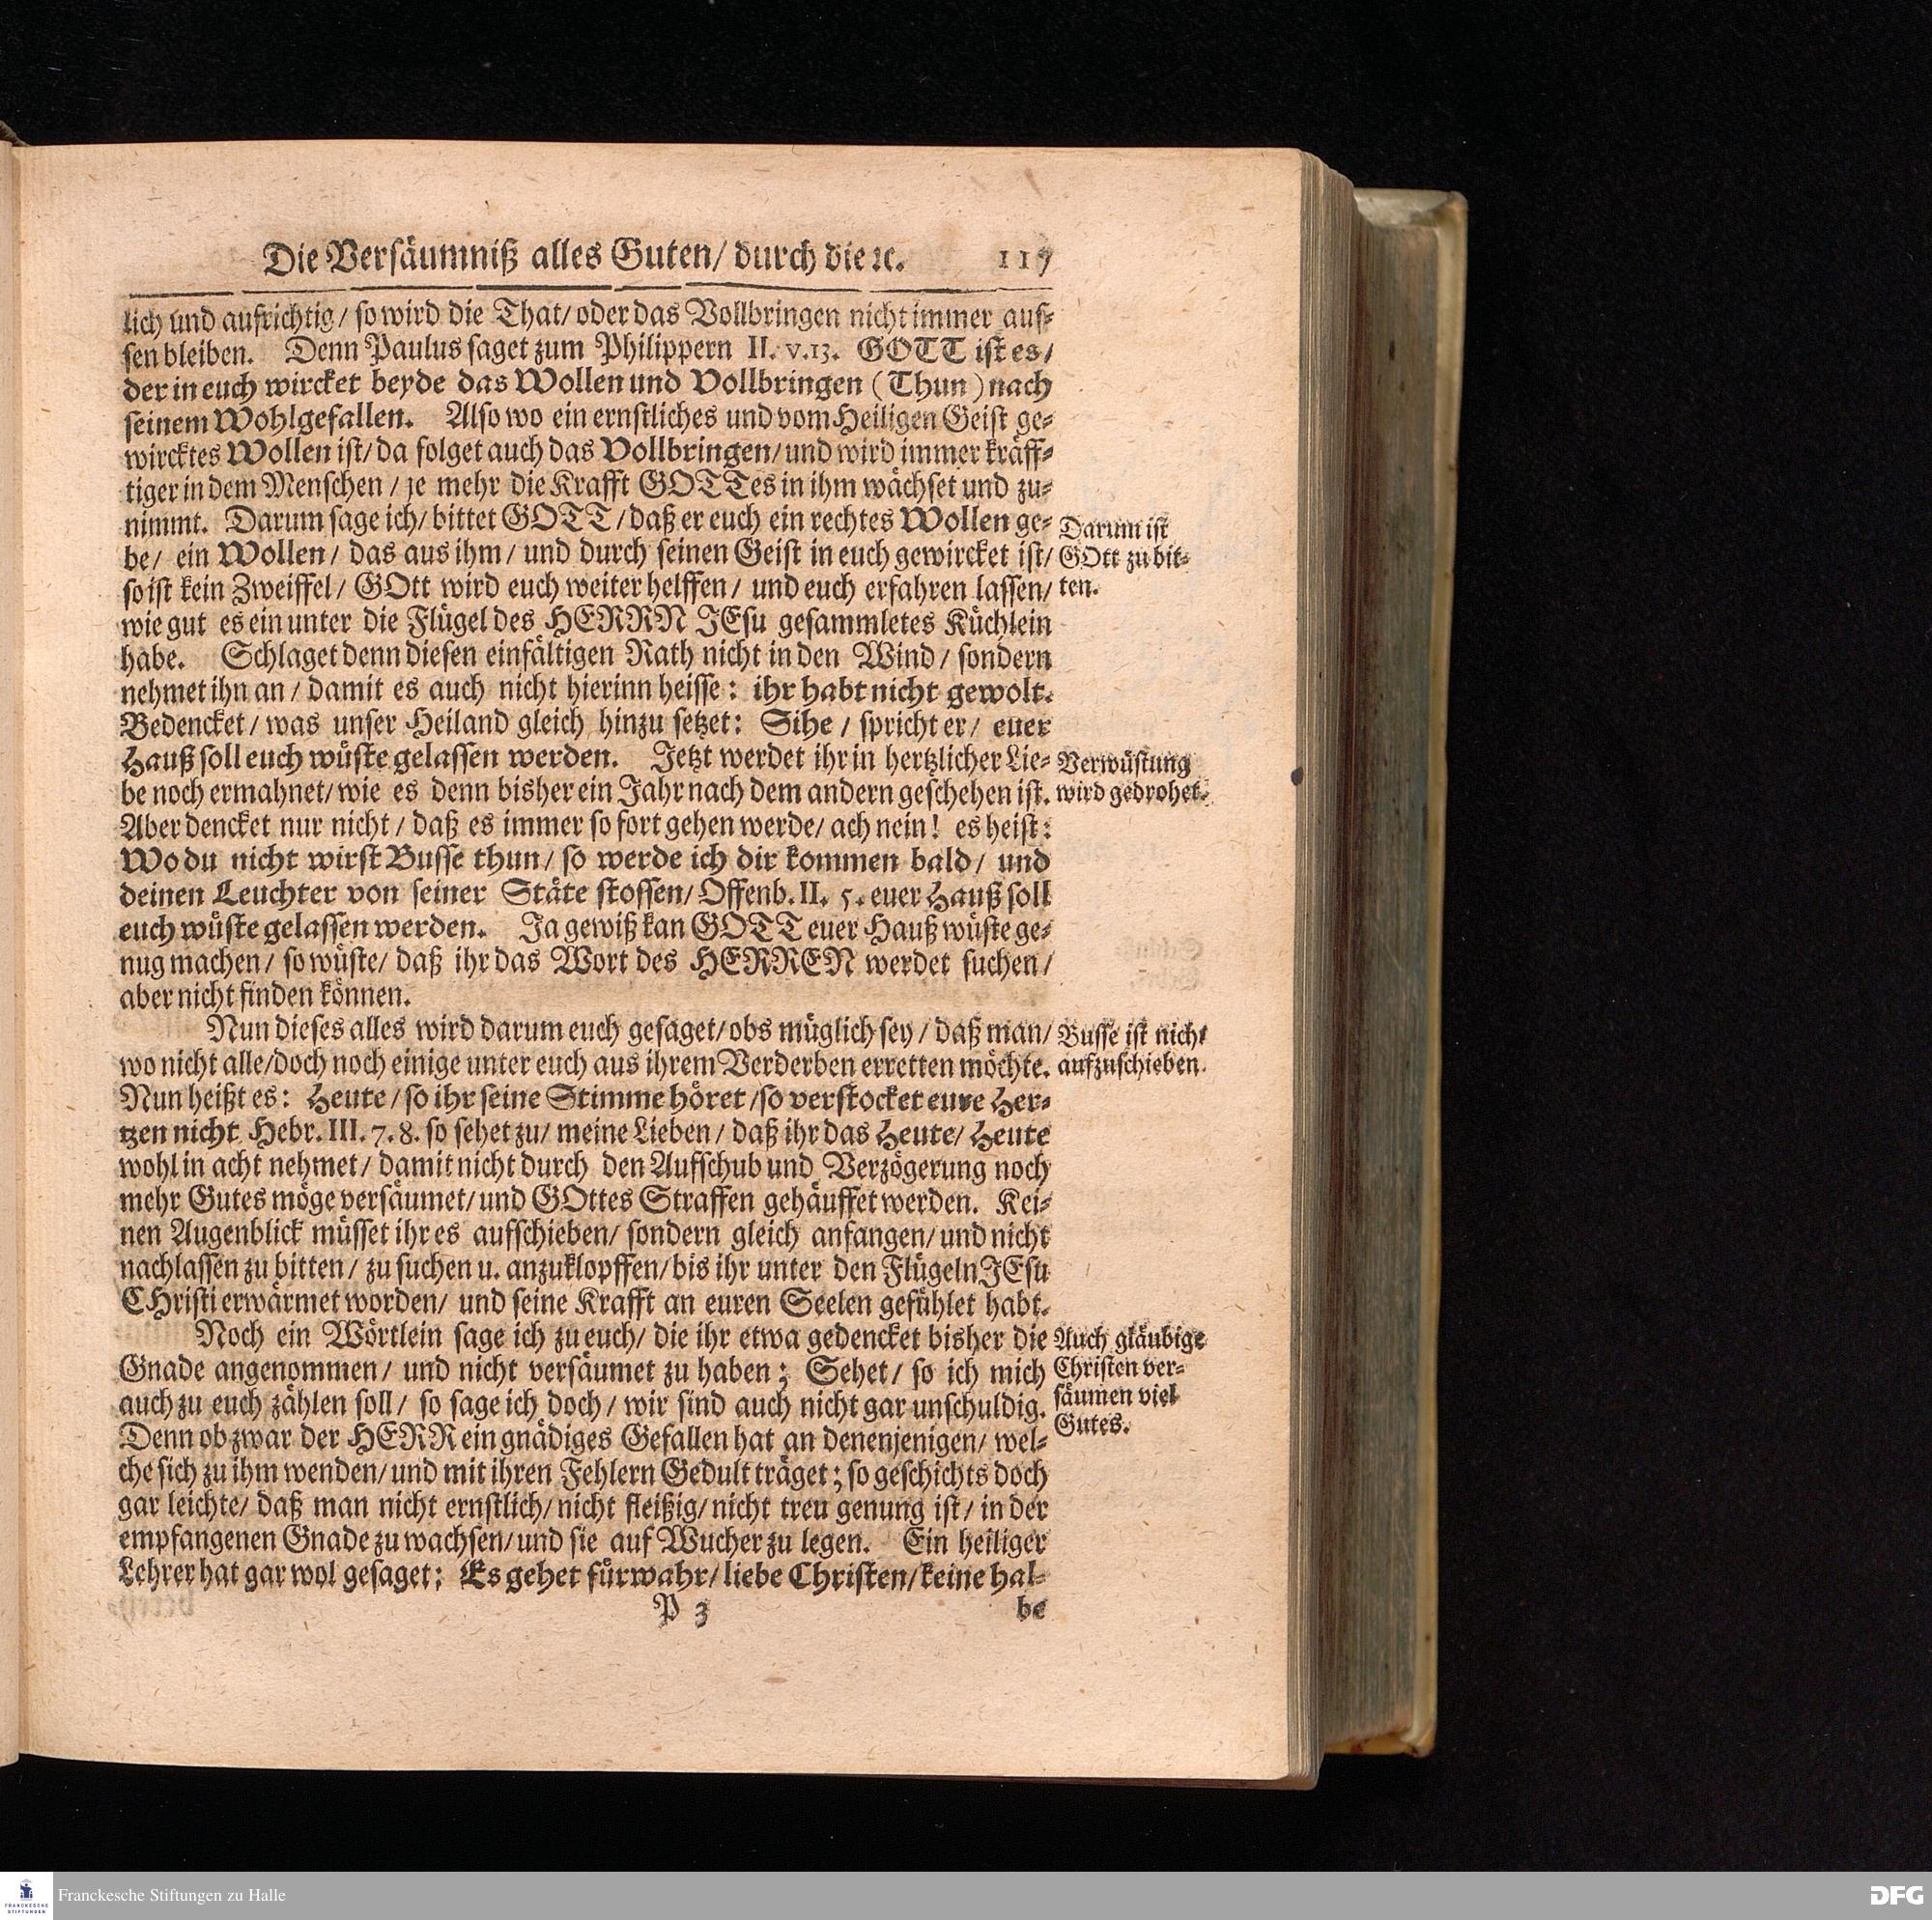 Die Versäumniß alles Guten/ durch die ꝛc. 117
lich und aufrichtig/ so wird die That/ oder das Vollbringen nicht immer aus-
sen bleiben. Denn Paulus saget zum Philippern II. v.13. GOTT ist es/
der in euch wircket beyde das Wollen und Vollbringen (Thun) nach
seinem Wohlgefallen. Also wo ein ernstliches und vom Heiligen Geist ge-
wircktes Wollen ist/ da folget auch das Vollbringen/ und wird immer kräff-
tiger in dem Menschen/ je mehr die Krafft GOTTes in ihm wächset und zu-
nimmt. Darum sage ich/ bittet GOTT/ daß er euch ein rechtes Wollen ge-
be/ ein Wollen/ das aus ihm/ und durch seinen Geist in euch gewircket ist/
so ist kein Zweiffel/ GOtt wird euch weiter helffen/ und euch erfahren lassen/
wie gut es ein unter die Flügel des HERRN JEsu gesammletes Küchlein
habe. Schlaget denn diesen einfältigen Rath nicht in den Wind/ sondern
nehmet ihn an/ damit es auch nicht hierinn heisse: ihr habt nicht gewolt.
Bedencket/ was unser Heiland gleich hinzu setzet: Sihe/ spricht er/ euer
Hauß soll euch wüste gelassen werden. Jetzt werdet ihr in hertzlicher Lie-
be noch ermahnet/ wie es denn bisher ein Jahr nach dem andern geschehen ist.
Aber dencket nur nicht/ daß es immer so fort gehen werde/ ach nein! es heist:
Wo du nicht wirst Busse thun/ so werde ich dir kommen bald/ und
deinen Leuchter von seiner Stäte stossen/ Offenb. II. 5. euer Hauß soll
euch wüste gelassen werden. Ja gewiß kan GOTT euer Hauß wüste ge-
nug machen/ so wüste/ daß ihr das Wort des HERREN werdet suchen/
aber nicht finden können.
Nun dieses alles wird darum euch gesaget/ obs müglich sey/ daß man/
wo nicht alle/ doch noch einige unter euch aus ihrem Verderben erretten möchte.
Nun heißt es: Heute/ so ihr seine Stimme höret/ so verstocket eure Her-
tzen nicht Hebr. III. 7. 8. so sehet zu/ meine Lieben/ daß ihr das Heute/ Heute
wohl in acht nehmet/ damit nicht durch den Aufschub und Verzögerung noch
mehr Gutes möge versäumet/ und GOttes Straffen gehäuffet werden. Kei-
nen Augenblick müsset ihr es aufschieben/ sondern gleich anfangen/ und nicht
nachlassen zu bitten/ zu suchen u. anzuklopffen/ bis ihr unter den Flügeln JEsu
CHristi erwärmet worden/ und seine Krafft an euren Seelen gefühlet habt.
Noch ein Wörtlein sage ich zu euch/ die ihr etwa gedencket bisher die
Gnade angenommen/ und nicht versäumet zu haben; Sehet/ so ich mich
auch zu euch zählen soll/ so sage ich doch/ wir sind auch nicht gar unschuldig.
Denn ob zwar der HERR ein gnädiges Gefallen hat an denenjenigen/ wel-
che sich zu ihm wenden/ und mit ihren Fehlern Gedult träget; so geschichts doch
gar leichte/ daß man nicht ernstlich/ nicht fleißig/ nicht treu genung ist/ in der
empfangenen Gnade zu wachsen/ und sie auf Wucher zu legen. Ein heiliger
Lehrer hat gar wol gesaget: Es gehet fürwahr/ liebe Christen/ keine hal-
P 3 be
Darum ist
GOtt zu bit-
ten.
Verwüstung
wird gedrohet.
Busse ist nicht
aufzuschieben.
Auch gläubige
Christen ver-
säumen viel
Gutes.
FRANCKESCHE
STIFTUNGEN
Franckesche Stiftungen zu Halle
DFG